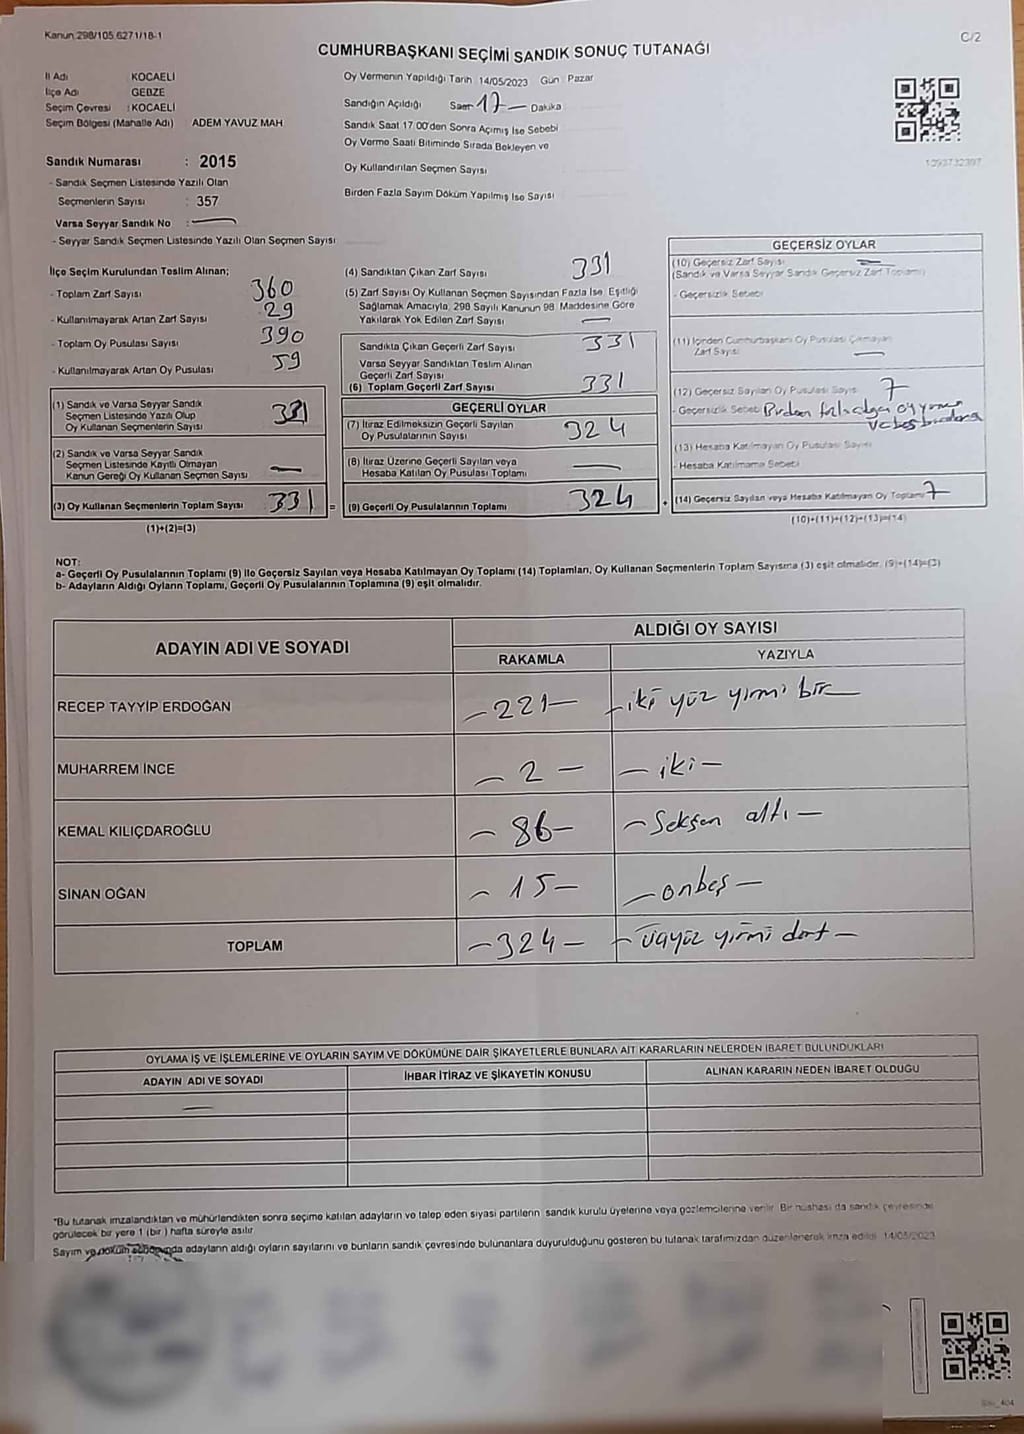 Kanun 298/105 6271/18-1
C/2
CUMHURBAŞKANI SEÇİMİ SANDIK SONUÇ TUTANAĞI
İl Adı KOCAELİ
İlçe Adı GEBZE
Seçim Çevresi : KOCAELİ
Seçim Bölgesi (Mahalle Adı) ADEM YAVUZ MAH
Sandık Numarası : 2015
- Sandık Seçmen Listesinde Yazılı Olan
Seçmenlerin Sayısı : 357
Varsa Seyyar Sandık No :
- Seyyar Sandık Seçmen Listesinde Yazılı Olan Seçmen Sayısı
Oy Vermenin Yapıldığı Tarih 14/05/2023 Gün : Pazar
Sandığın Açıldığı Saat 17 — Dakika
Sandık Saat 17:00'den Sonra Açımış İse Sebebi
Oy Verme Saati Bitiminde Sırada Bekleyen ve
Oy Kullandırılan Seçmen Sayısı
Birden Fazla Sayım Döküm Yapılmış İse Sayısı
1093732397
İlçe Seçim Kurulundan Teslim Alınan;
- Toplam Zarf Sayısı 360
- Kullanılmayarak Artan Zarf Sayısı 29
- Toplam Oy Pusulası Sayısı 390
- Kullanılmayarak Artan Oy Pusulası 59
(1) Sandık ve Varsa Seyyar Sandık
Seçmen Listesinde Yazılı Olup
Oy Kullanan Seçmenlerin Sayısı 331
(2) Sandık ve Varsa Seyyar Sandık
Seçmen Listesinde Kayıtlı Olmayan
Kanun Gereği Oy Kullanan Seçmen Sayısı —
(3) Oy Kullanan Seçmenlerin Toplam Sayısı 331 =
(1)+(2)=(3)
(4) Sandıktan Çıkan Zarf Sayısı 331
(5) Zarf Sayısı Oy Kullanan Seçmen Sayısından Fazla İse, Eşitliği
Sağlamak Amacıyla, 298 Sayılı Kanunun 98. Maddesine Göre
Yakılarak Yok Edilen Zarf Sayısı —
Sandıkta Çıkan Geçerli Zarf Sayısı 331
Varsa Seyyar Sandıktan Teslim Alınan
Geçerli Zarf Sayısı
(6) Toplam Geçerli Zarf Sayısı 331
GEÇERLİ OYLAR
(7) İtiraz Edilmeksizin Geçerli Sayılan
Oy Pusulalarının Sayısı 324
(8) İtiraz Üzerine Geçerli Sayılan veya
Hesaba Katılan Oy Pusulası Toplamı —
(9) Geçerli Oy Pusulalarının Toplamı 324 +
GEÇERSİZ OYLAR
(10) Geçersiz Zarf Sayısı —
(Sandık ve Varsa Seyyar Sandık Geçersiz Zarf Toplamı)
- Geçersizlik Sebebi
(11) İçinden Cumhurbaşkanı Oy Pusulası Çıkmayan
Zarf Sayısı —
(12) Geçersiz Sayılan Oy Pusulası Sayısı 7
- Geçersizlik Sebebi Birden fazla
(13) Hesaba Katılmayan Oy Pusulası Sayısı
- Hesaba Katılmama Sebebi
(14) Geçersiz Sayılan veya Hesaba Katılmayan Oy Toplamı 7
(10)+(11)+(12)+(13)=(14)
NOT:
a- Geçerli Oy Pusulalarının Toplamı (9) ile Geçersiz Sayılan veya Hesaba Katılmayan Oy Toplamı (14) Toplamları, Oy Kullanan Seçmenlerin Toplam Sayısına (3) eşit olmalıdır. (9)+(14)=(3)
b- Adayların Aldığı Oyların Toplamı, Geçerli Oy Pusulalarının Toplamına (9) eşit olmalıdır.
ADAYIN ADI VE SOYADI
ALDIĞI OY SAYISI
RAKAMLA YAZIYLA
RECEP TAYYİP ERDOĞAN — 221 — — iki yüz yirmi bir —
MUHARREM İNCE — 2 — — iki —
KEMAL KILIÇDAROĞLU — 86 — — Seksen altı —
SİNAN OĞAN — 15 — — onbeş —
TOPLAM — 324 — — üçyüz yirmi dört —
OYLAMA İŞ VE İŞLEMLERİNE VE OYLARIN SAYIM VE DÖKÜMÜNE DAİR ŞİKAYETLERLE BUNLARA AİT KARARLARIN NELERDEN İBARET BULUNDUKLARI
ADAYIN ADI VE SOYADI İHBAR İTİRAZ VE ŞİKAYETİN KONUSU ALINAN KARARIN NEDEN İBARET OLDUĞU
—
*Bu tutanak imzalandıktan ve mühürlendikten sonra seçime katılan adayların ve talep eden siyasi partilerin sandık kurulu üyelerine veya gözlemcilerine verilir. Bir nüshası da sandık çevresinde
görülecek bir yere 1 (bir) hafta süreyle asılır.
Sayım ve döküm sonucunda adayların aldığı oyların sayılarını ve bunların sandık çevresinde bulunanlara duyurulduğunu gösteren bu tutanak tarafımızdan düzenlenerek imza edildi. 14/05/2023